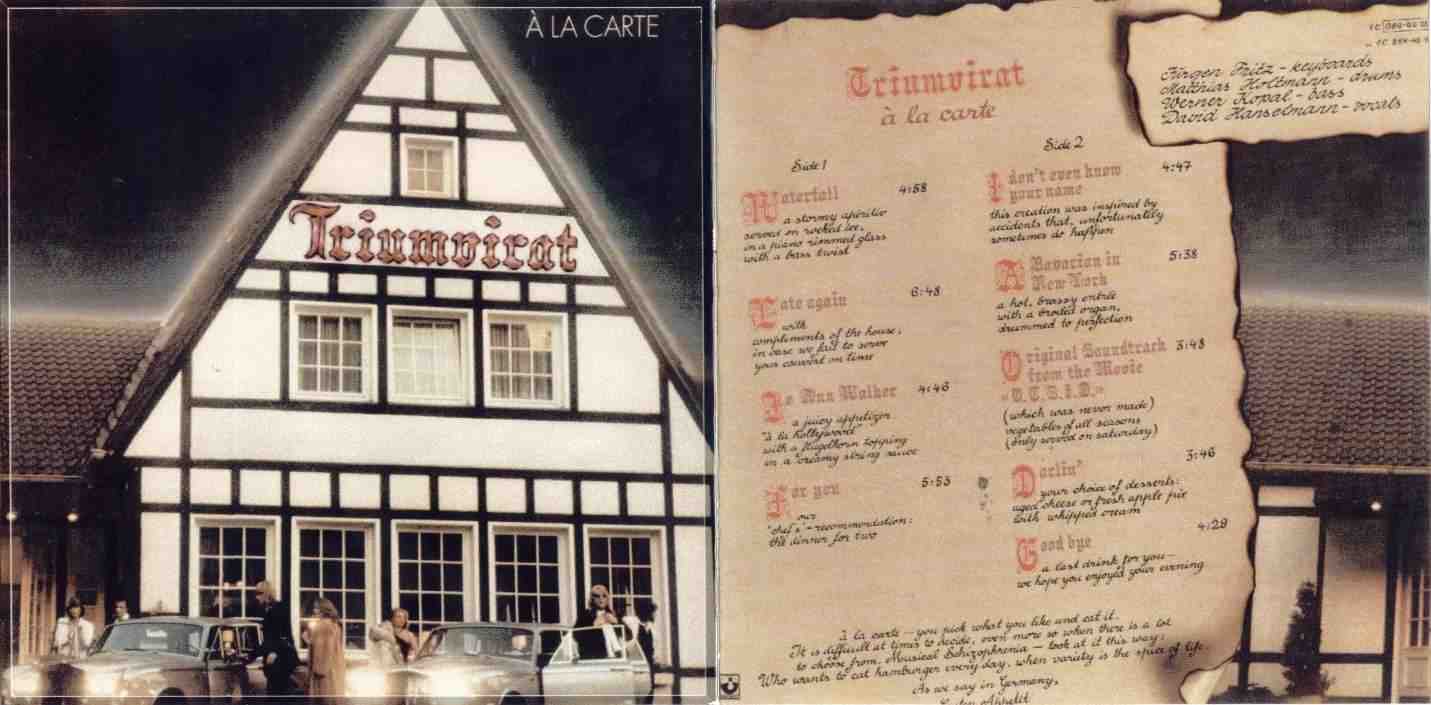 À LA CARTE
Triumvirat
Triumvirat
à la carte
Jürgen Fritz - keyboards
Matthias Holtmann - drums
Werner Kopal - bass
David Hanselmann - vocals
Side 1
Waterfall 4:58
a stormy apéritio
served on rocked ice,
in a piano rimmed glass
with a bass twist
Late again 6:48
with
compliments of the house,
in case we fail to serve
your caviar on time
Jo Ann Walker 4:46
a juicy appetizer
"à la Hollywood"
with a flugelhorn topping
in a creamy string sauce
For you 5:53
our
"chef's"-recommendation:
the dinner for two
Side 2
I don't even know 4:47
your name
this creation was inspired by
accidents that, unfortunately
sometimes do happen
A Bavarian in 5:38
New York
a hot, brassy entrée
with a broiled organ,
drummed to perfection
Original Soundtrack 3:48
from the Movie
«O.C.S.I.D.»
(which was never made)
vegetables of all seasons
(only served on saturday)
Darlin' 3:46
your choice of desserts:
aged cheese or fresh apple pie
with whipped cream
Good bye 4:29
a last drink for you -
we hope you enjoyed your evening
à la carte - you pick what you like and eat it.
It is difficult at times to decide, even more so when there is a lot
to choose from. Musical Schizophrenia - look at it this way:
Who wants to eat hamburger every day, when variety is the spice of life.
As we say in Germany,
Guten Appetit